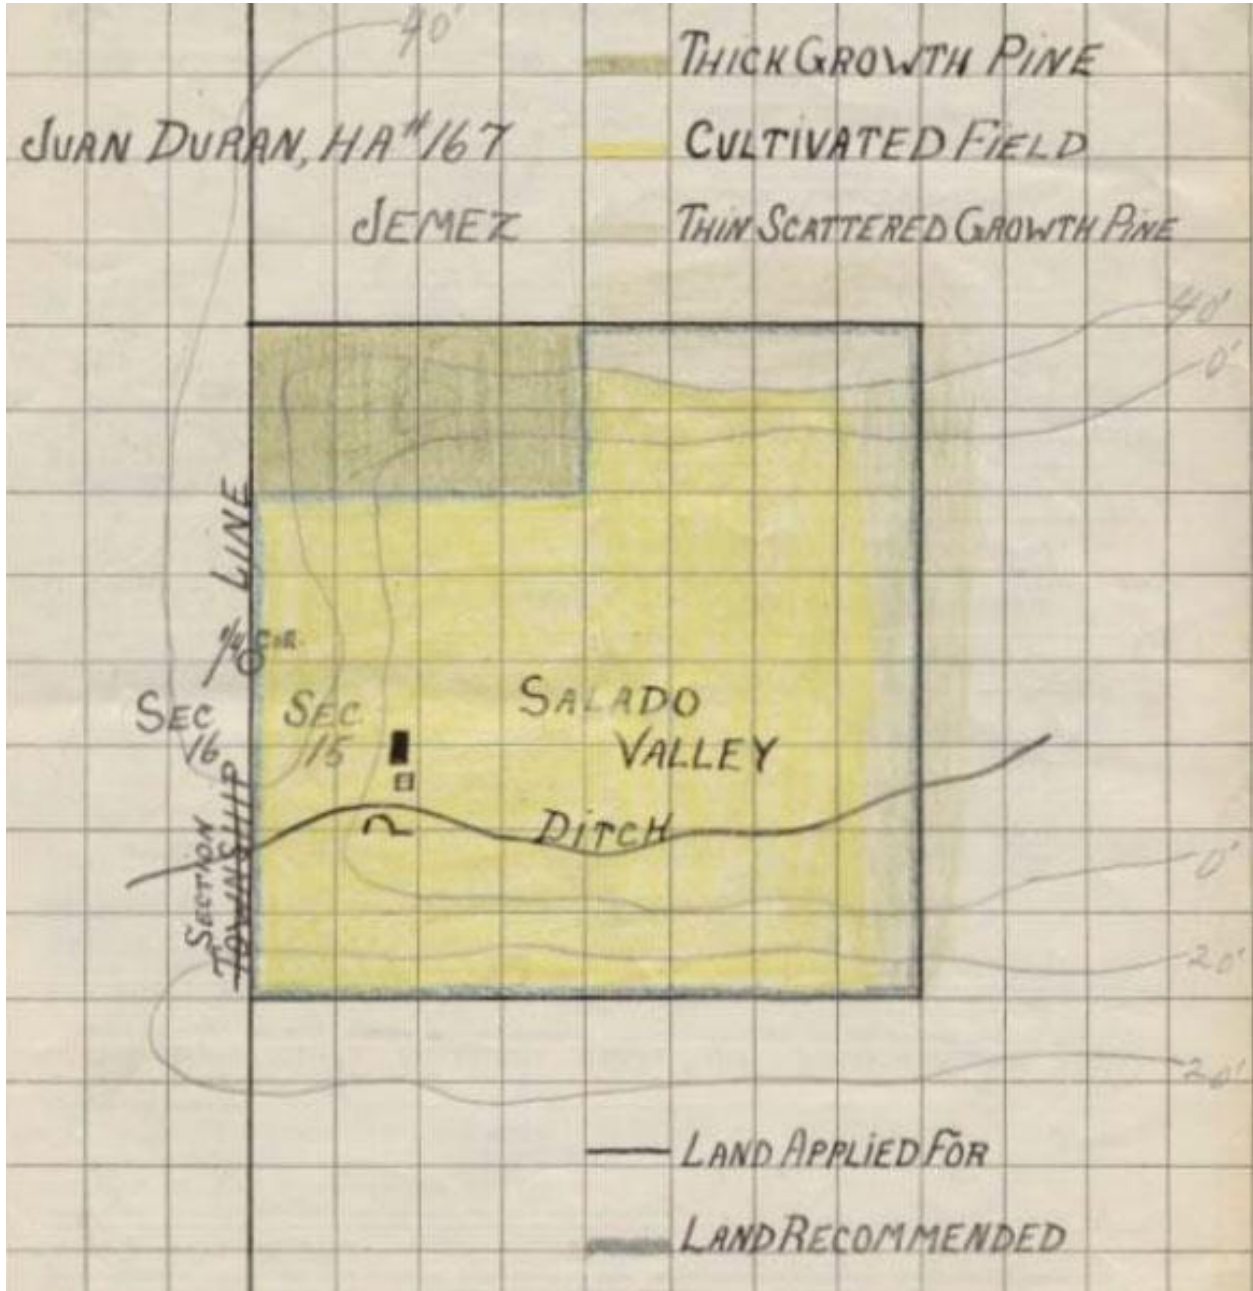 40'
THICK GROWTH PINE
JUAN DURAN, HA#167
CULTIVATED FIELD
JEMEZ
THIN SCATTERED GROWTH PINE
40'
0'
LINE
1/4 COR.
SEC 16
SEC. 15
SALADO
VALLEY
DITCH
SECTION
TOWNSHIP
0'
20'
20'
LAND APPLIED FOR
LAND RECOMMENDED